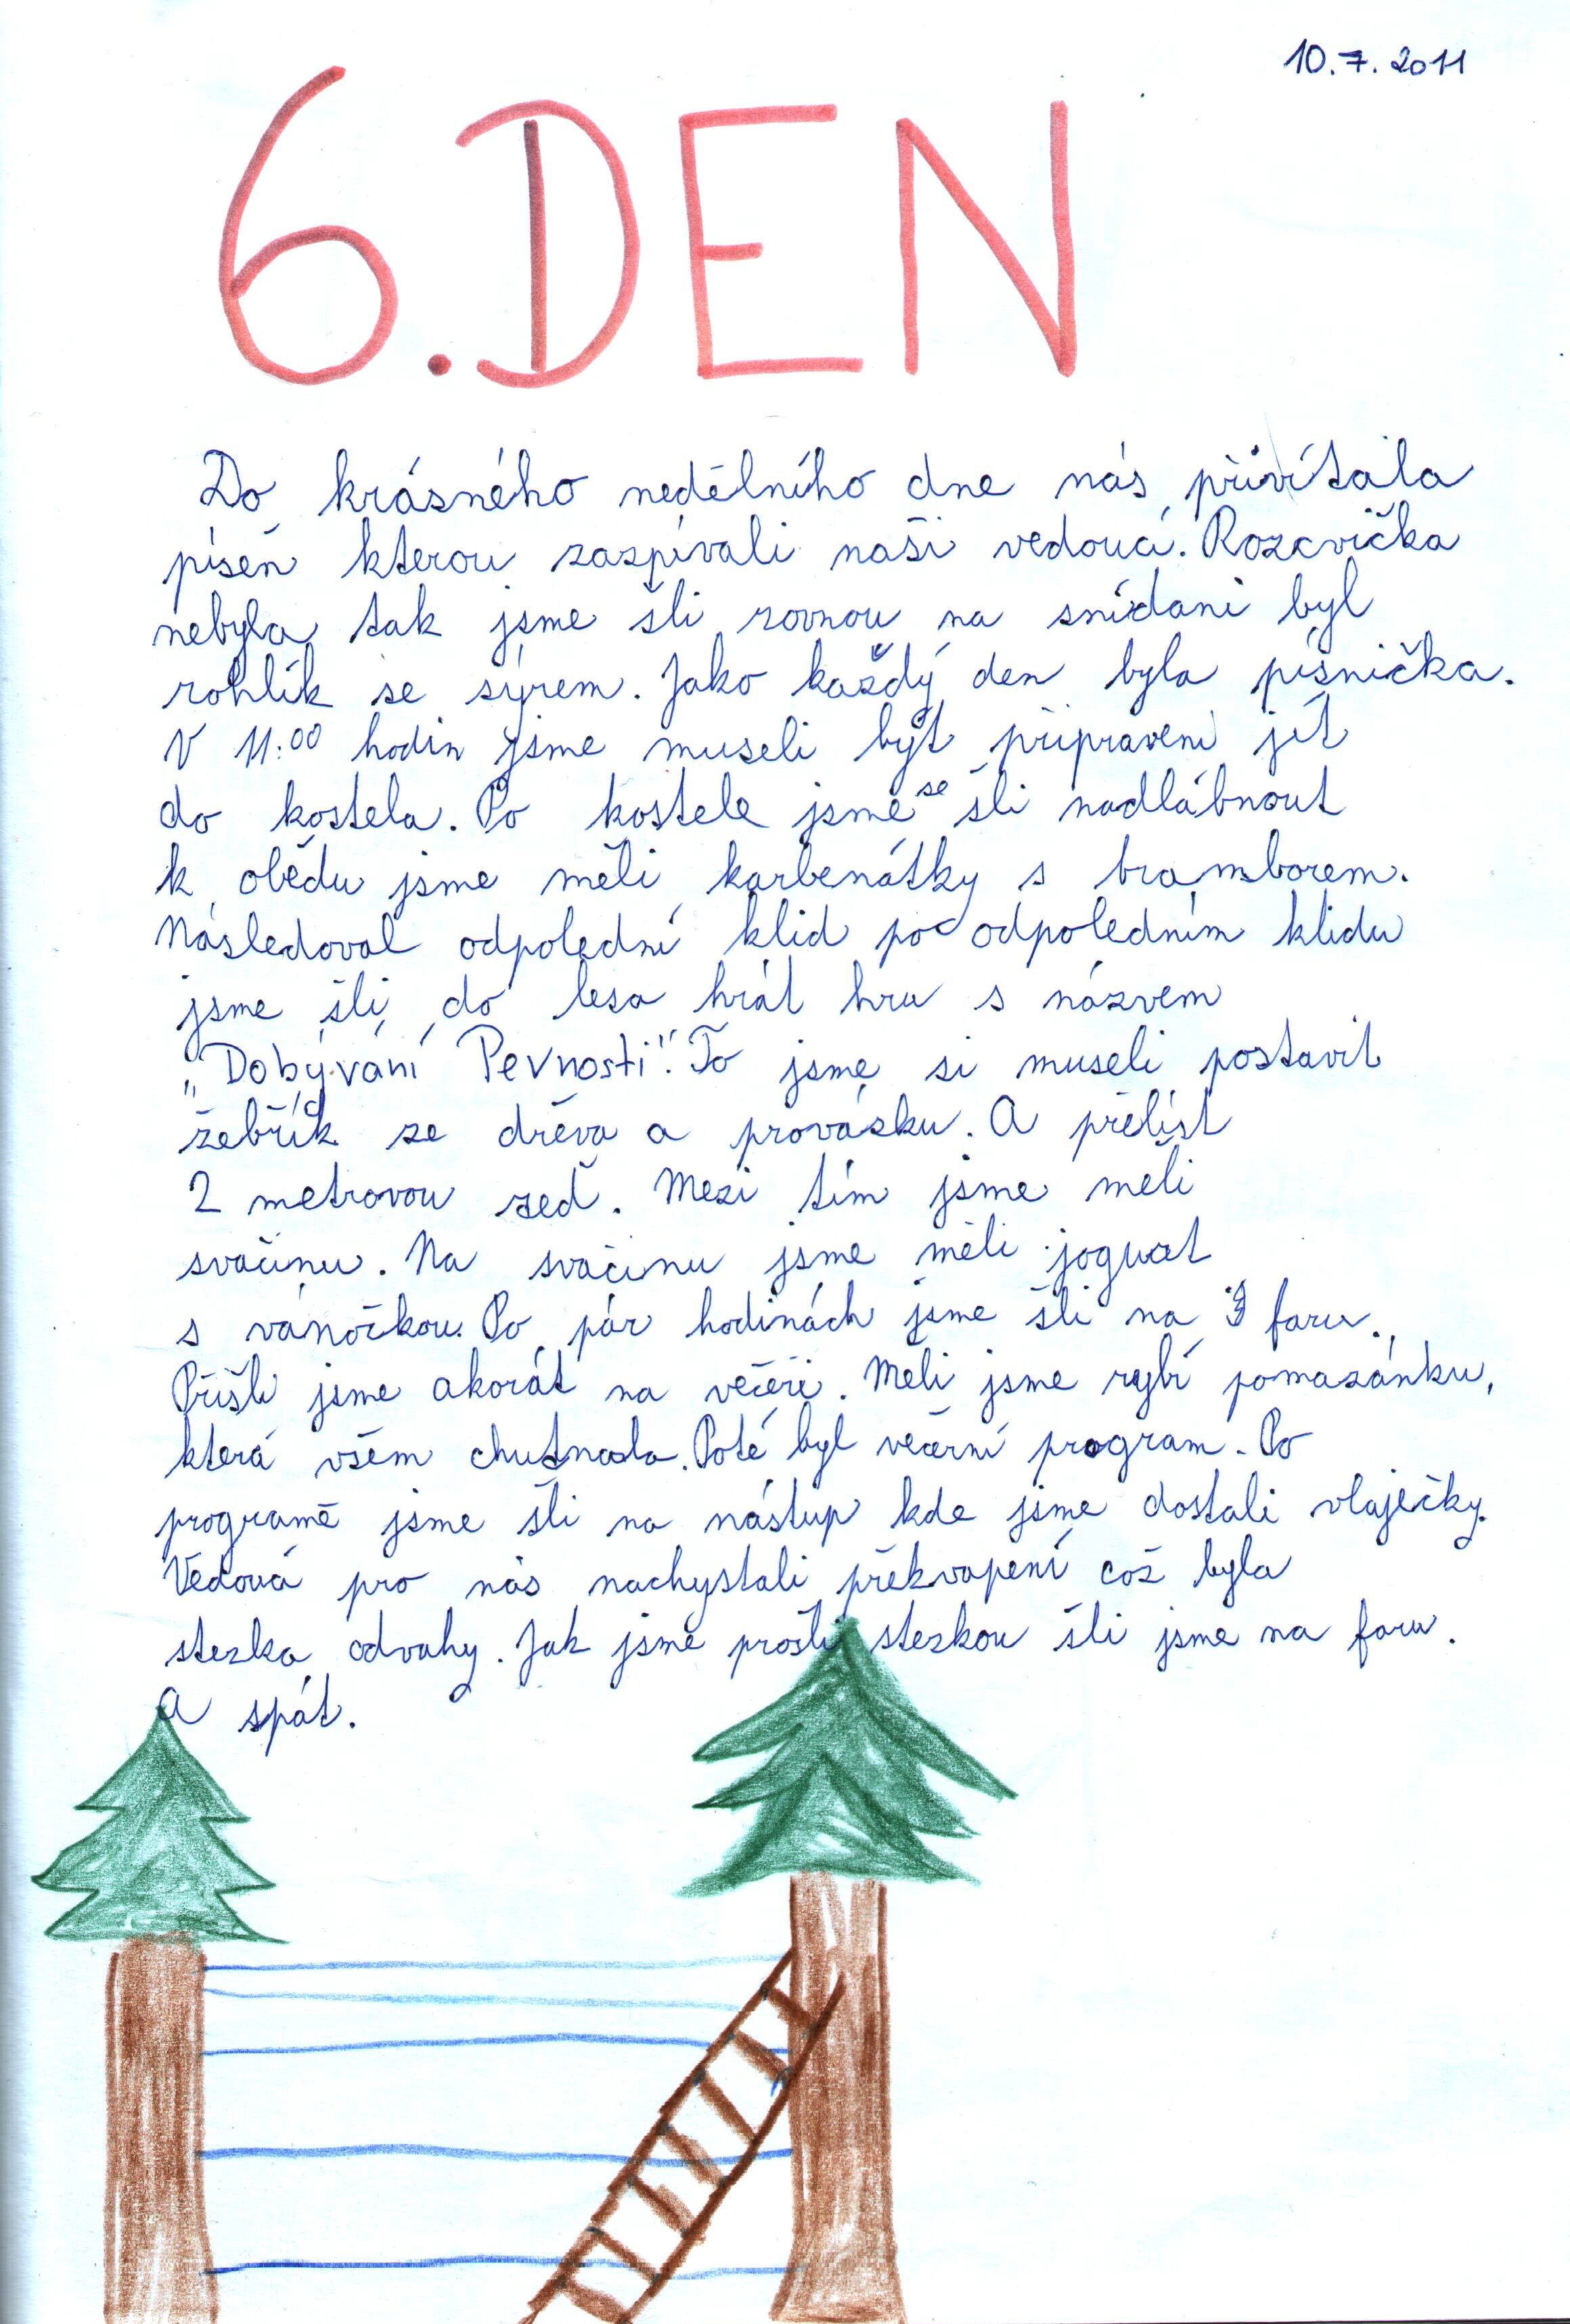 10.7.2011
6.DEN
Do krásného nedělního dne nás přivítala
píseň kterou zazpívali naši vedoucí. Rozcvička
nebyla tak jsme šli rovnou na snídani byl
rohlík se sýrem. Jako každý den byla písnička.
V 11:00 hodin jsme museli být připraveni jít
do kostela. Po kostele jsme se šli nadlábnout
k obědu jsme měli karbenátky s bramborem.
Následoval odpolední klid po odpoledním klidu
jsme šli do lesa hrát hru s názvem
„Dobývání Pevnosti". To jsme si museli postavit
žebřík ze dřeva a provázku. A přelíst
2 metrovou zeď. Mezi tím jsme měli
svačinu. Na svačinu jsme měli jogurt
s vánočkou. Po pár hodinách jsme šli na faru.
Přišli jsme akorát na večeři. Měli jsme rybí pomazánku,
která všem chutnala. Poté byl večerní program. Po
programě jsme šli na nástup kde jsme dostali vlaječky.
Vedoucí pro nás nachystali překvapení což byla
stezka odvahy. Jak jsme prošli stezkou šli jsme na faru.
A spát.